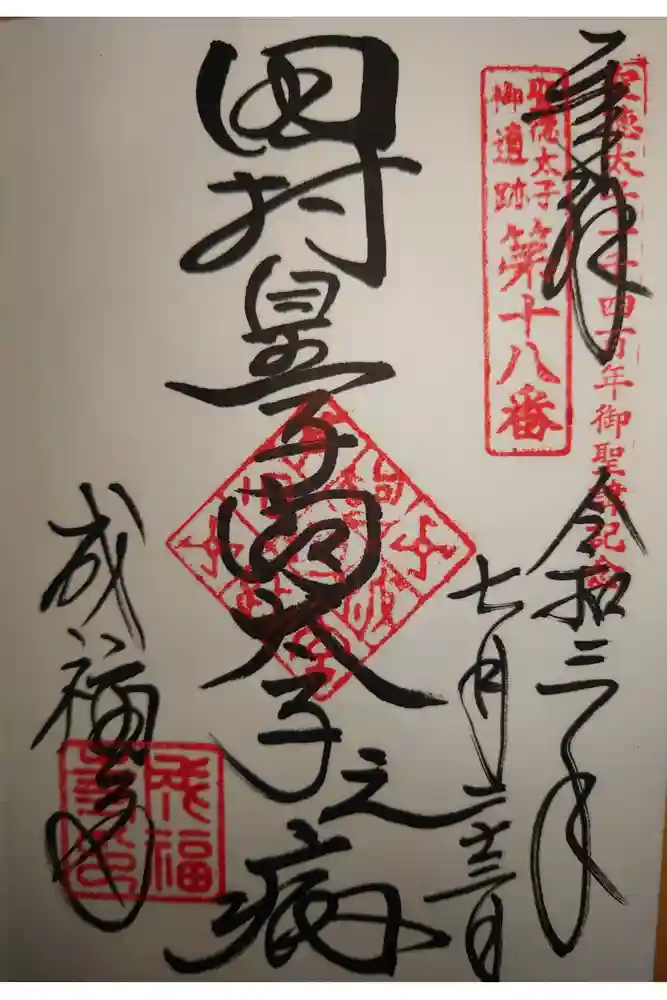 奉拝
聖徳太子千四百年御聖諱記念
聖徳太子
御遺跡
第十八番
令和三年
七月二十三日
田村皇子問太子之病
成福寺
成福